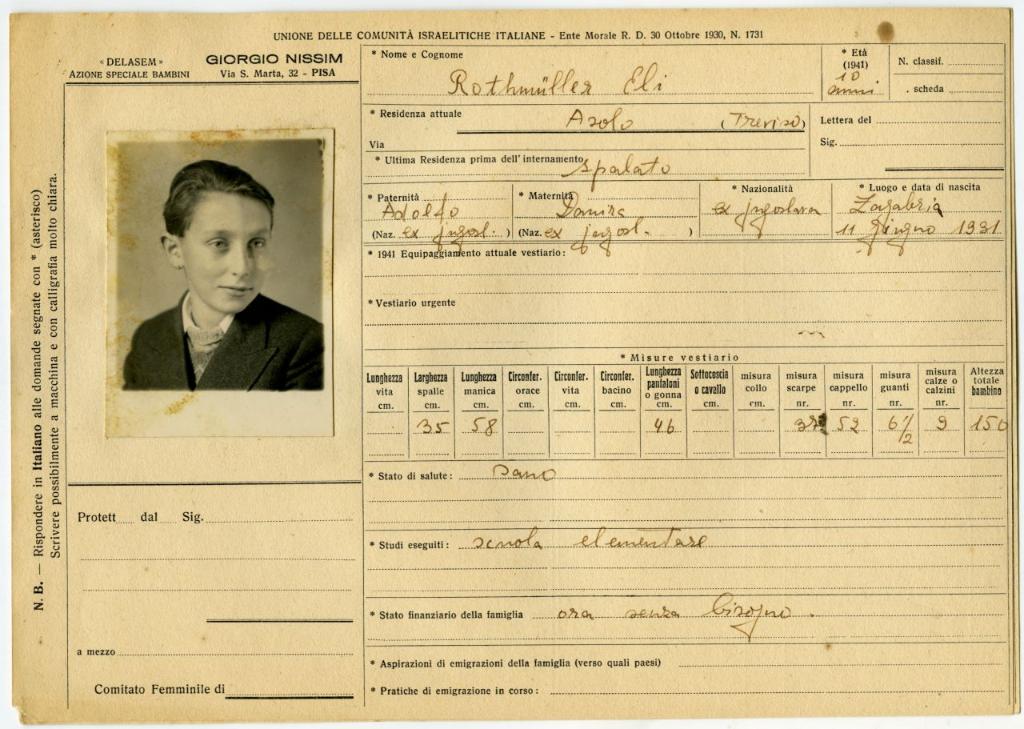 UNIONE DELLE COMUNITÀ ISRAELITICHE ITALIANE - Ente Morale R. D. 30 Ottobre 1930, N. 1731
« DELASEM »
AZIONE SPECIALE BAMBINI
GIORGIO NISSIM
Via S. Marta, 32 - PISA
* Nome e Cognome
Rothmüller Eli
* Età
(1941)
10
anni
N. classif.
. scheda
* Residenza attuale
Asolo (Treviso)
Via
Lettera del
Sig.
* Ultima Residenza prima dell'internamento
Spalato
* Paternità
Adolfo
(Naz. ex jugosl. )
* Maternità
Danira
(Naz. ex jugosl. )
* Nazionalità
ex jugoslava
* Luogo e data di nascita
Zagabria
11 giugno 1931.
* 1941 Equipaggiamento attuale vestiario:
* Vestiario urgente
* Misure vestiario
Lunghezza vita cm.
Larghezza spalle cm. 35
Lunghezza manica cm. 58
Circonfer. orace cm.
Circonfer. vita cm.
Circonfer. bacino cm.
Lunghezza pantaloni o gonna cm. 46
Sottocoscia o cavallo cm.
misura collo cm.
misura scarpe nr.
misura cappello nr. 52
misura guanti nr. 6 1/2
misura calze o calzini nr. 9
Altezza totale bambino 150
* Stato di salute: sano
* Studi eseguiti: scuola elementare
* Stato finanziario della famiglia ora senza bisogno.
* Aspirazioni di emigrazioni della famiglia (verso quali paesi)
* Pratiche di emigrazione in corso:
Protett dal Sig.
a mezzo
Comitato Femminile di
N. B. — Rispondere in Italiano alle domande segnate con * (asterisco)
Scrivere possibilmente a macchina e con calligrafia molto chiara.